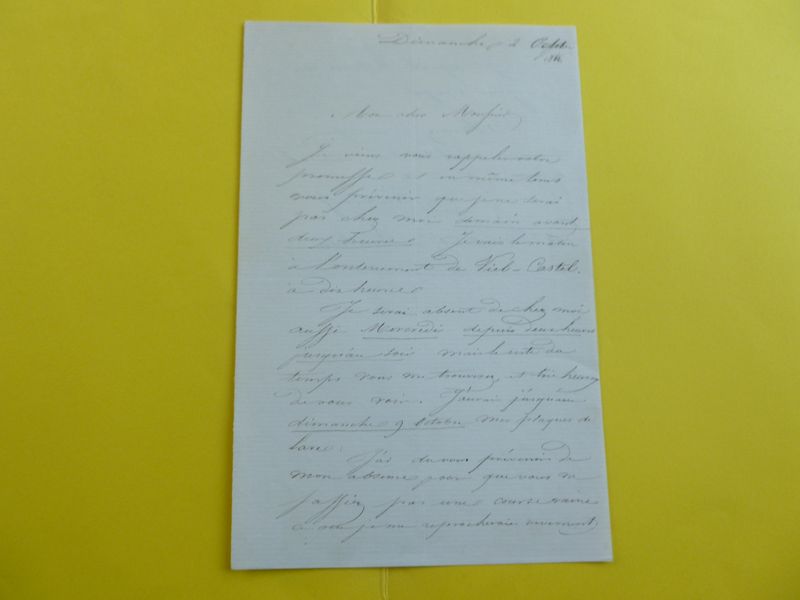 Dimanche 2 Octobre
Mon cher Monsieur
Je viens vous rappeler votre
promesse et en même tems
vous prévenir que je ne serai
pas chez moi demain avant
deux heures. Je vais le matin
à l'enterrement de Viel-Castel
à dix heures.
Je serai absent de chez moi
aussi Mercredi depuis deux heures
jusqu'au soir mais le reste du
temps vous me trouverez et très heureux
de vous voir. J'aurai jusqu'au
dimanche 9 Octobre mes plaques de
J'ai du vous prévenir de
mon absence pour que vous ne
fassiez pas une course vaine
ce que je me reprocherais vivement